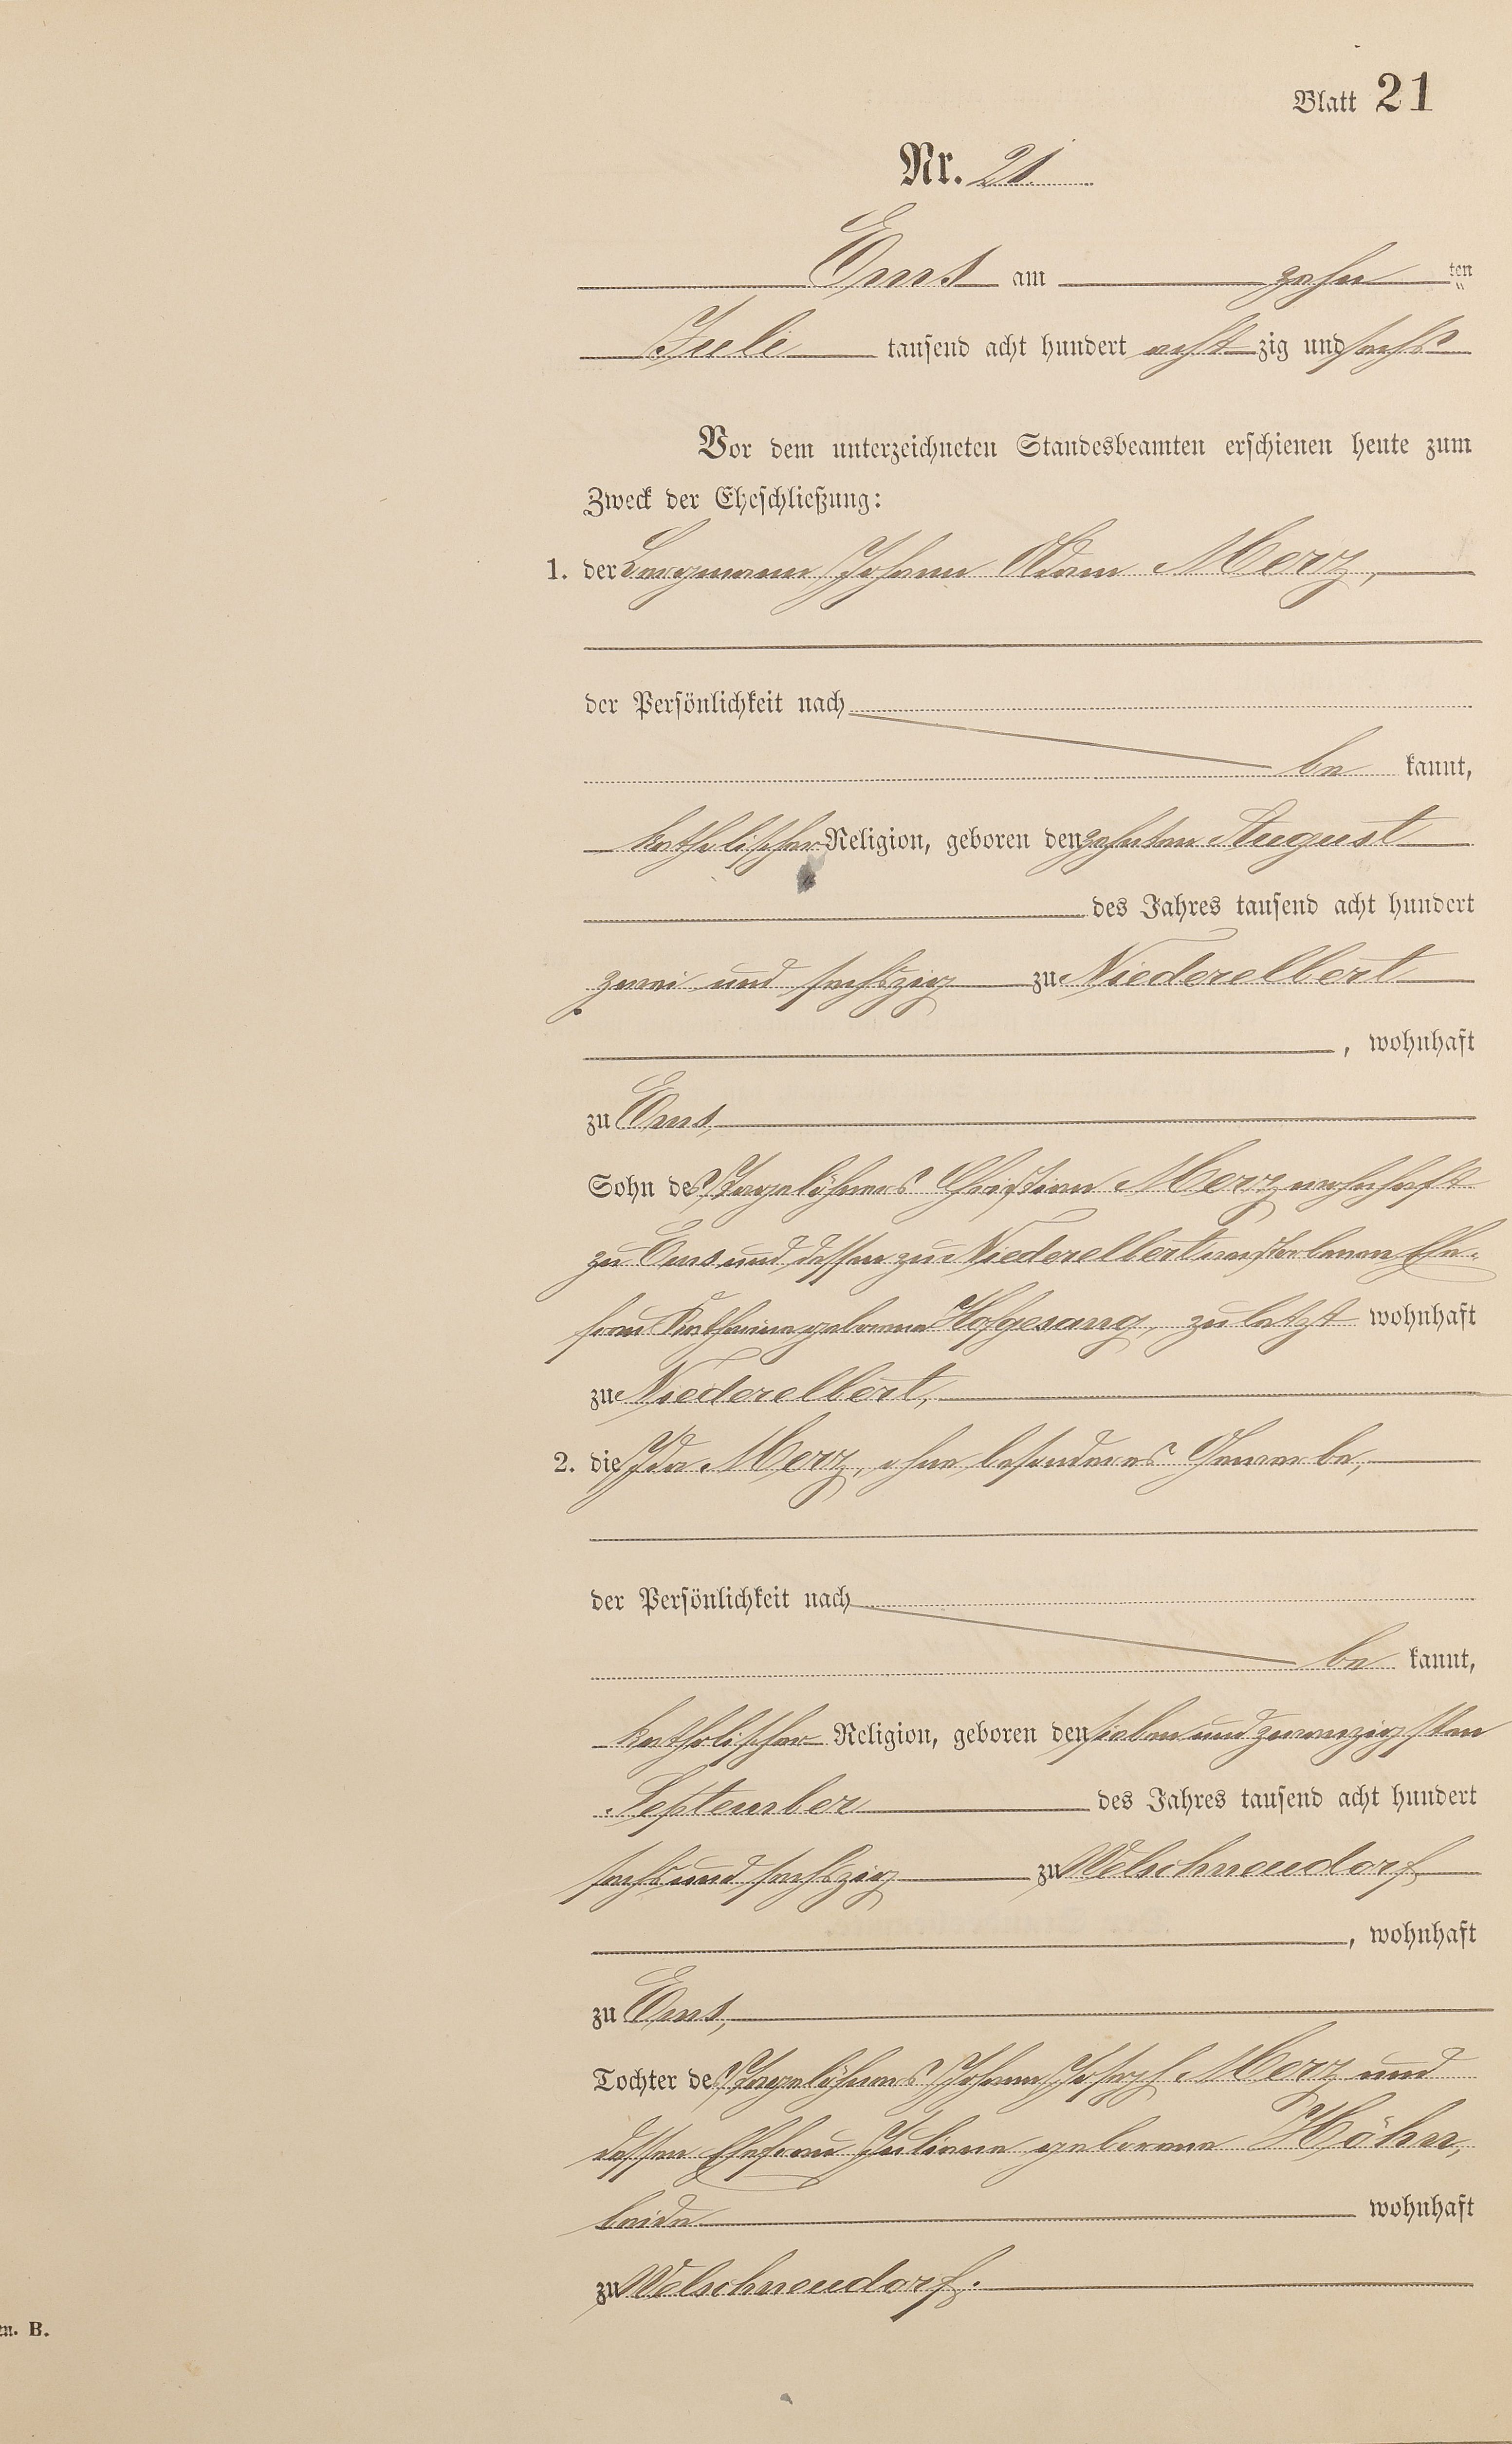 Blatt 21
Nr. 21.
Ems am zehn ten
Juli tausend acht hundert acht zig und sechs
Vor dem unterzeichneten Standesbeamten erschienen heute zum
Zweck der Eheschließung:
1. der Bergmann Johann Adam Merz,
der Persönlichkeit nach
be kannt,
katholischer Religion, geboren den zehnten August
des Jahres tausend acht hundert
zwei und sechszig zu Niederelbert
, wohnhaft
zu Ems,
Sohn des Tagelöhners Christian Merz wohnhaft
zu Ems und dessen zu Niederelbert verstorbenen Ehe-
frau Katharina geborene Hofgesang, zuletzt wohnhaft
zu Niederelbert,
2. die Ida Merz, ohne besonderes Gewerbe,
der Persönlichkeit nach
be kannt,
katholischer Religion, geboren den sieben und zwanzigsten
September des Jahres tausend acht hundert
sechs und sechszig zu Welschneudorf
, wohnhaft
zu Ems,
Tochter des Tagelöhners Johann Joseph Merz und
dessen Ehefrau Juliane geborene Höhn,
beide wohnhaft
zu Welschneudorf.
n. B.